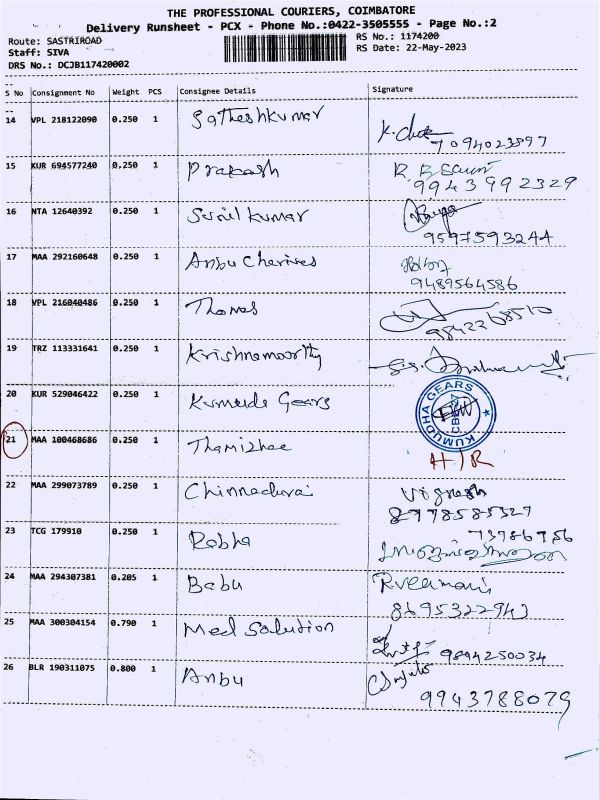 THE PROFESSIONAL COURIERS, COIMBATORE
Delivery Runsheet - PCX - Phone No.:0422-3505555 - Page No.:2
Route: SASTRIROAD
Staff: SIVA
DRS No.: DCJB117420002
RS No.: 1174200
RS Date: 22-May-2023
S No Consignment No Weight PCS Consignee Details Signature
14 VPL 218122090 0.250 1 Satheshkumar
7094023897
15 KUR 694577240 0.250 1 Prakash
9943992329
16 NTA 12640392 0.250 1 Sunil kumar
9597593244
17 MAA 292160648 0.250 1 Anbu Cheriyes
9489564586
18 VPL 216040486 0.250 1 Thomas
9842268510
19 TRZ 113331641 0.250 1 Krishnamoorthy
20 KUR 529046422 0.250 1 Kumuda Gears
KUMUDHA GEARS
21 MAA 100468686 0.250 1 Thamizhee
H/R
22 MAA 299073789 0.250 1 Chinnadurai Vignesh
8978585327
23 TCG 179910 0.250 1 Rabha 73786956
24 MAA 294307381 0.205 1 Babu R.Veemani
8695322943
25 MAA 300304154 0.790 1 Med Solution
9894250034
26 BLR 190311075 0.800 1 Anbu
9943788079